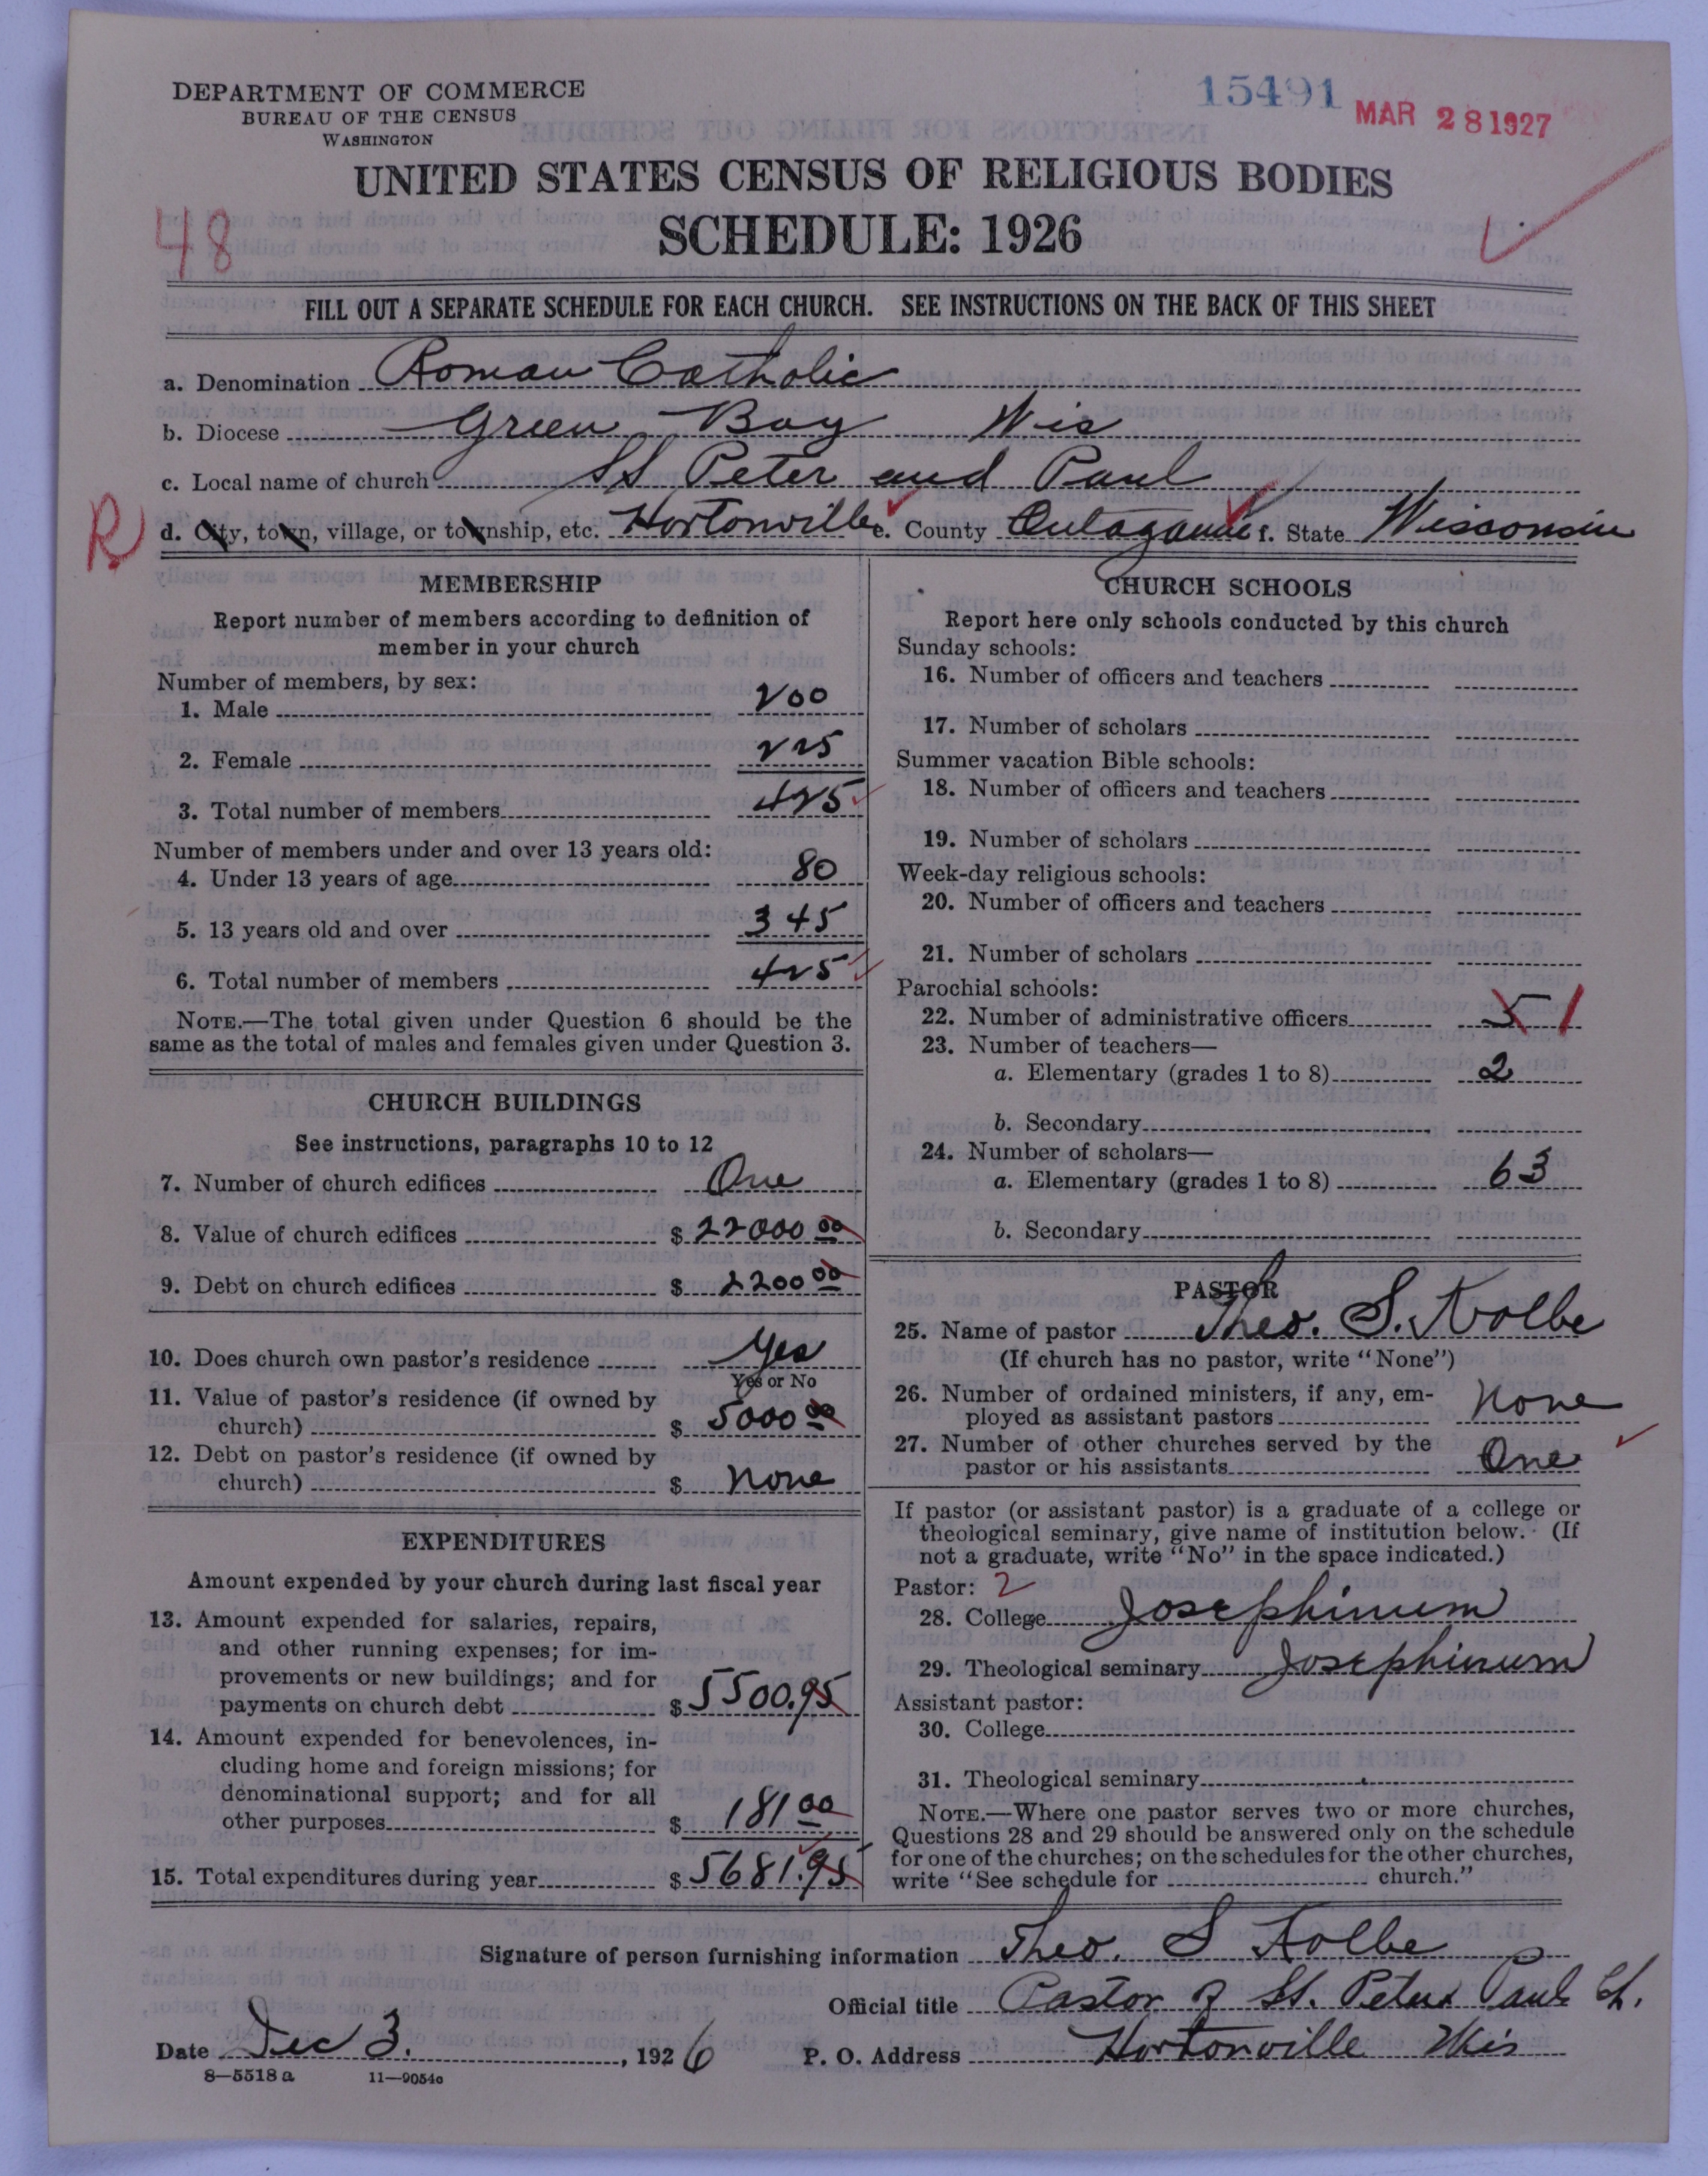 DEPARTMENT OF COMMERCE
BUREAU OF THE CENSUS
WASHINGTON
15491
MAR 28 1927
UNITED STATES CENSUS OF RELIGIOUS BODIES
SCHEDULE: 1926
48
FILL OUT A SEPARATE SCHEDULE FOR EACH CHURCH. SEE INSTRUCTIONS ON THE BACK OF THIS SHEET
a. Denomination Roman Catholic
b. Diocese Green Bay Wis
c. Local name of church SS Peter and Paul
R d. City, town, village, or township, etc. Hortonville e. County Outagamie f. State Wisconsin
MEMBERSHIP
Report number of members according to definition of
member in your church
Number of members, by sex:
1. Male 200
2. Female 225
3. Total number of members 425
Number of members under and over 13 years old:
4. Under 13 years of age 80
5. 13 years old and over 345
6. Total number of members 425
NOTE.—The total given under Question 6 should be the
same as the total of males and females given under Question 3.
CHURCH BUILDINGS
See instructions, paragraphs 10 to 12
7. Number of church edifices One
8. Value of church edifices $ 22000 00
9. Debt on church edifices $ 2200 00
10. Does church own pastor's residence Yes
Yes or No
11. Value of pastor's residence (if owned by
church) $ 5000 00
12. Debt on pastor's residence (if owned by
church) $ none
EXPENDITURES
Amount expended by your church during last fiscal year
13. Amount expended for salaries, repairs,
and other running expenses; for im-
provements or new buildings; and for
payments on church debt $ 5500.95
14. Amount expended for benevolences, in-
cluding home and foreign missions; for
denominational support; and for all
other purposes $ 181 00
15. Total expenditures during year $ 5681.95
CHURCH SCHOOLS
Report here only schools conducted by this church
Sunday schools:
16. Number of officers and teachers
17. Number of scholars
Summer vacation Bible schools:
18. Number of officers and teachers
19. Number of scholars
Week-day religious schools:
20. Number of officers and teachers
21. Number of scholars
Parochial schools:
22. Number of administrative officers 5 1
23. Number of teachers—
a. Elementary (grades 1 to 8) 2
b. Secondary
24. Number of scholars—
a. Elementary (grades 1 to 8) 63
b. Secondary
PASTOR
25. Name of pastor Theo. S. Kolbe
(If church has no pastor, write "None")
26. Number of ordained ministers, if any, em-
ployed as assistant pastors None
27. Number of other churches served by the
pastor or his assistants One
If pastor (or assistant pastor) is a graduate of a college or
theological seminary, give name of institution below. (If
not a graduate, write "No" in the space indicated.)
Pastor: 2
28. College Josephinum
29. Theological seminary Josephinum
Assistant pastor:
30. College
31. Theological seminary
NOTE.—Where one pastor serves two or more churches,
Questions 28 and 29 should be answered only on the schedule
for one of the churches; on the schedules for the other churches,
write "See schedule for church."
Signature of person furnishing information Theo. S Kolbe
Official title Pastor of SS. Peter & Paul Ch.
Date Dec 3. , 1926 P. O. Address Hortonville Wis
8—5518 a 11—9054c